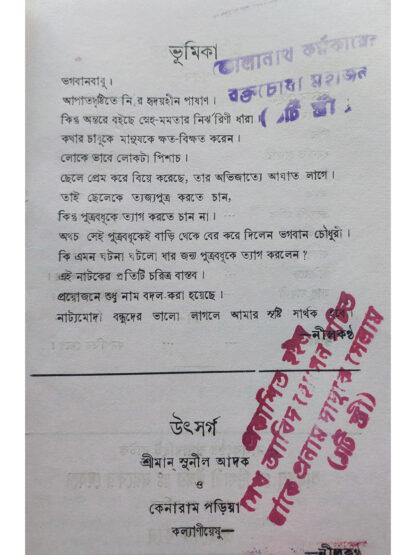 ভূমিকা
ভোলানাথ কর্মকারের
রক্তচোষা মহাজন
(৩টি স্ত্রী)
ভগবানবাবু।
আপাতদৃষ্টিতে নিষ্ঠুর হৃদয়হীন পাষাণ।
কিন্তু অন্তরে বইছে স্নেহ-মমতার নির্ঝরিণী ধারা।
কথার চাবুকে মানুষকে ক্ষত-বিক্ষত করেন।
লোকে ভাবে লোকটা পিশাচ।
ছেলে প্রেম করে বিয়ে করেছে, তার অভিজাত্যে আঘাত লাগে।
তাই ছেলেকে ত্যজ্যপুত্র করতে চান,
কিন্তু পুত্রবধূকে ত্যাগ করতে চান না।
অথচ সেই পুত্রবধূকেই বাড়ি থেকে বের করে দিলেন ভগবান চৌধুরী।
কি এমন ঘটনা ঘটলো যার জন্য পুত্রবধূকে ত্যাগ করলেন?
এই নাটকের প্রতিটি চরিত্র বাস্তব।
প্রয়োজনে শুধু নাম বদল করা হয়েছে।
নাট্যমোদী বন্ধুদের ভালো লাগলে আমার সৃষ্টি সার্থক হবে।
—নীলকণ্ঠ
প্রকাশিত হইল
সেখ আবিদ হোসেন রচিত
মাকে প্রনাম দাদুকে সেলাম
(৩টি স্ত্রী)
উৎসর্গ
শ্রীমান্ সুনীল আদক
ও
কেনারাম পড়িয়া
কল্যাণীয়েষু—
—নীলকণ্ঠ